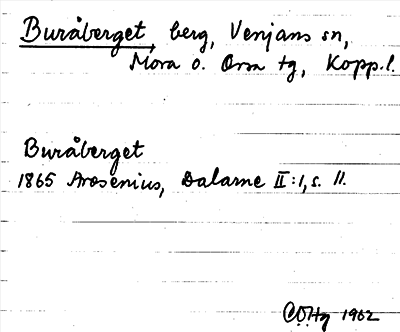 Buråberget, berg, Venjans sn,
Mora o. Orsa tg, Kopp.l.
Buråberget
1865 Arosenius, Dalarne II:1, s. 11.
1962